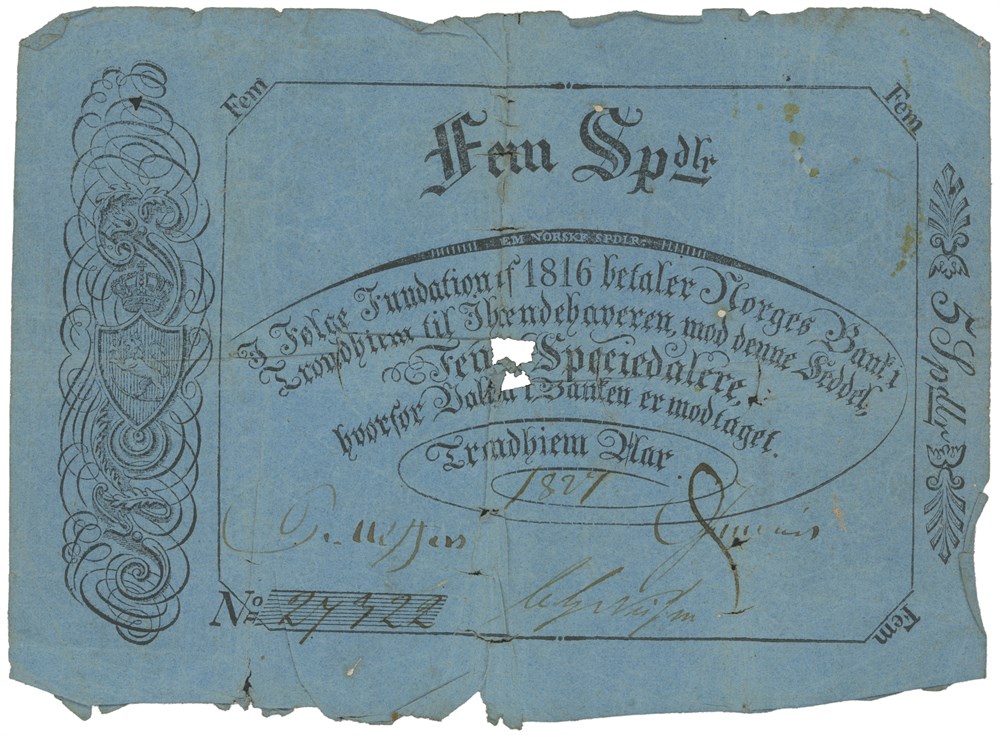 Fem
Fem
Fem Spdlr
EM NORSKE SPDLR:
I Følge Fundation af 1816 betaler Norges Bank i
Trondhiem til Ihændehaveren, mod denne Seddel,
Fem Speciedalere,
hvorfor Valuta i Banken er modtaget.
Trondhiem Aar.
1827
No 27322
Fem
5 Spdlr